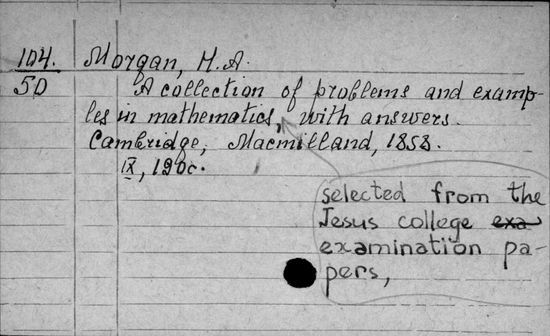 104.
50
Morgan, H.A.
A collection of problems and examp-
les in mathematics, with answers.
Cambridge, Macmilland, 1858.
IX, 190c.
selected from the
Jesus college exa
examination pa-
pers,